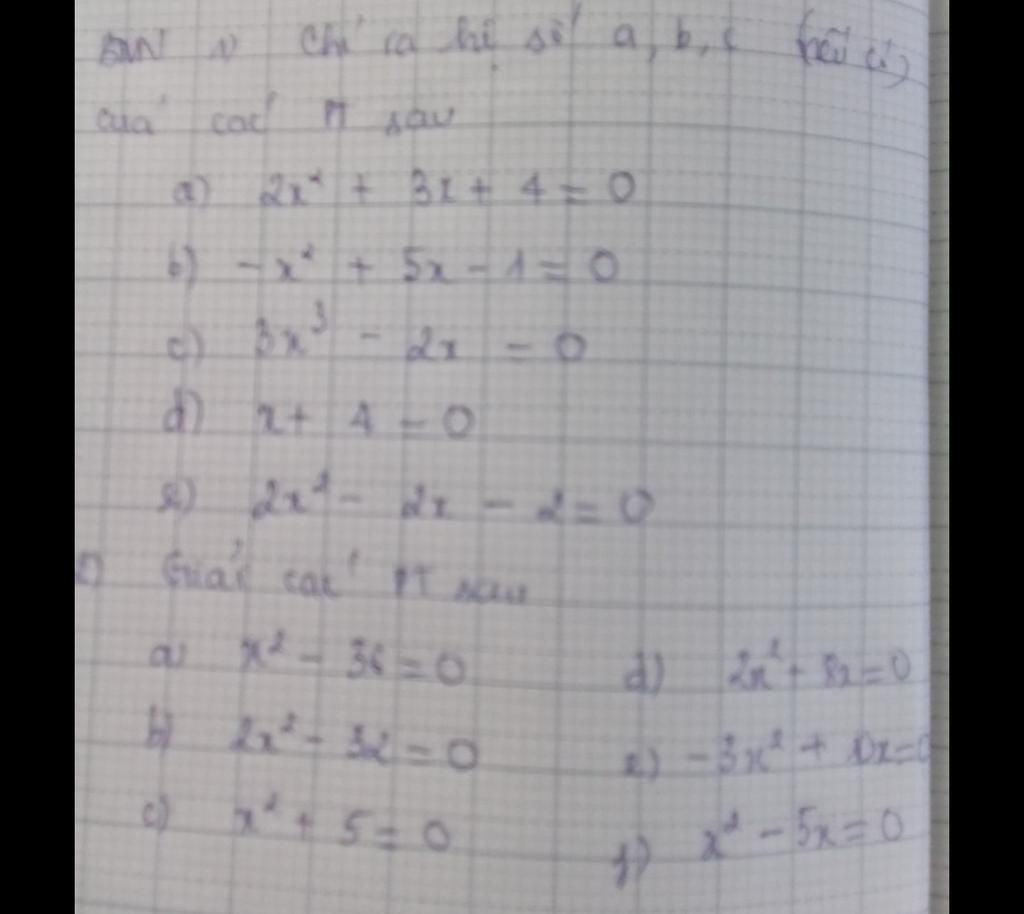 Bài 1) Chỉ ra hệ số a, b, c (nếu có)
của các PT sau
a) 2x² + 3x + 4 = 0
b) -x² + 5x - 1 = 0
c) 3x³ - 2x = 0
d) x + 4 = 0
e) 2x² - 2x - 2 = 0
2) Giải các PT sau
a) x² - 36 = 0
b) 2x² - 32 = 0
c) x² + 5 = 0
d) 2x² + 8x = 0
e) -3x² + 10x = 0
f) x² - 5x = 0